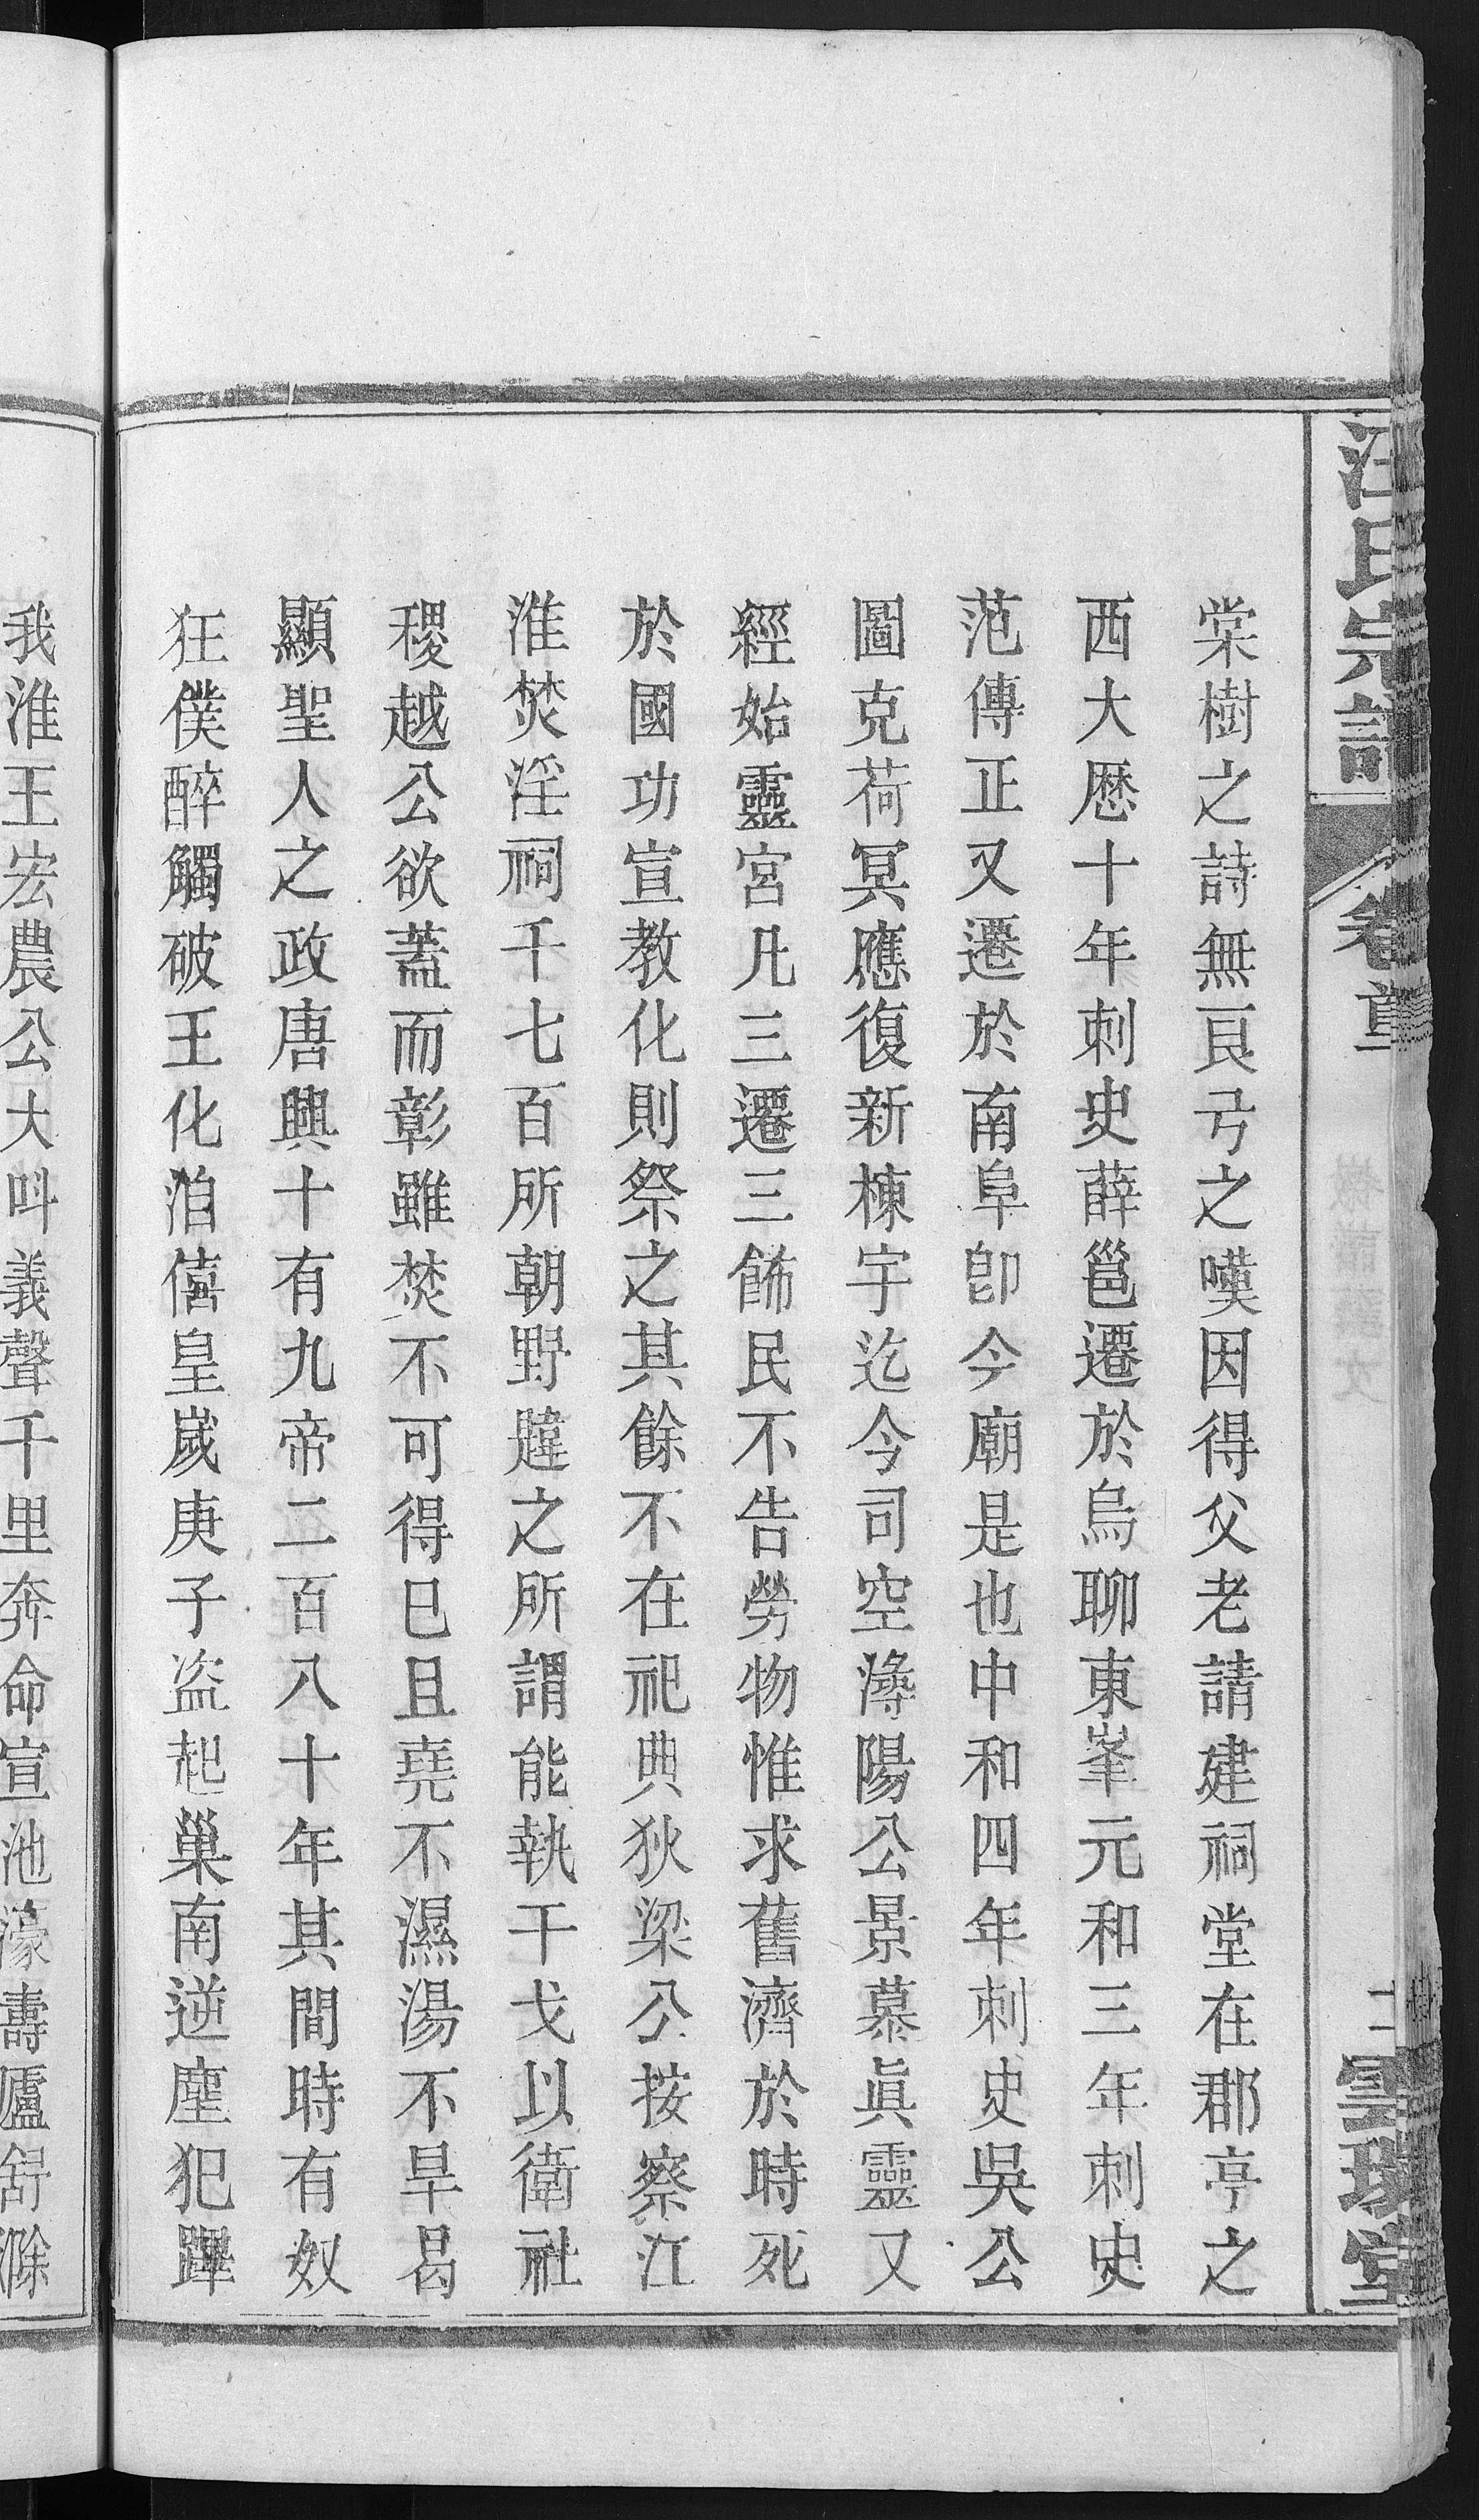 汪氏宗譜
卷首
二
雲瑞堂
棠樹之詩無良弓之嘆因得父老請建祠堂在郡亭之
西大厯十年刺史薛邕遷於烏聊東峯元和三年刺史
范傳正又遷於南阜卽今廟是也中和四年刺史吳公
圖克荷冥應復新棟宇迄今司空潯陽公景慕眞靈又
經始靈宮凡三遷三飾民不告勞物惟求舊濟於時死
於國功宣教化則祭之其餘不在祀典狄梁公按察江
淮焚淫祠千七百所朝野韙之所謂能執干戈以衛社
稷越公欲蓋而彰雖焚不可得巳且堯不濕湯不旱曷
顯聖人之政唐興十有九帝二百八十年其間時有奴
狂僕醉觸破王化洎僖皇嵗庚子盗起巢南逆塵犯蹕
我淮王宏農公大呌義聲千里奔命宣池濠壽廬舒滁